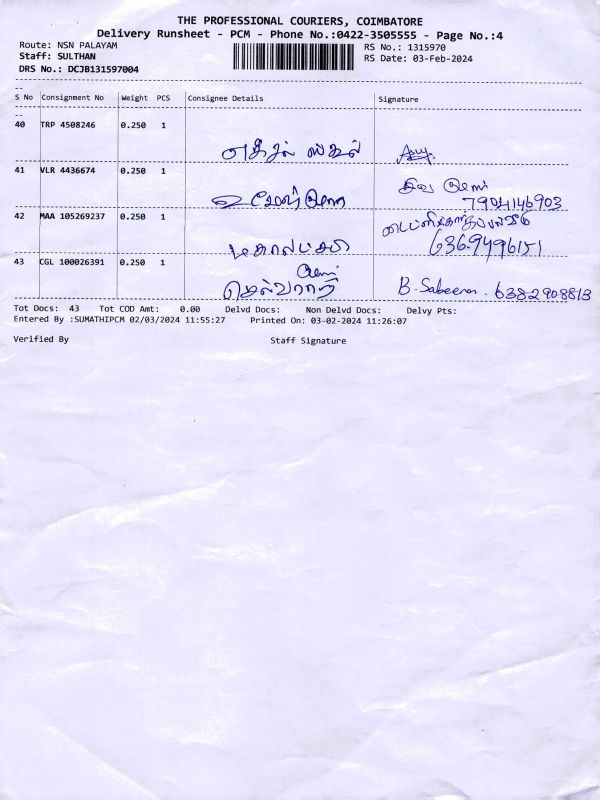 THE PROFESSIONAL COURIERS, COIMBATORE
Delivery Runsheet - PCM - Phone No.:0422-3505555 - Page No.:4
Route: NSN PALAYAM
RS No.: 1315970
Staff: SULTHAN
RS Date: 03-Feb-2024
DRS No.: DCJB131597004
S No Consignment No Weight PCS Consignee Details Signature
40 TRP 4508246 0.250 1
41 VLR 4436674 0.250 1
7904146903
42 MAA 105269237 0.250 1
6369496151
43 CGL 100026391 0.250 1
B. Sabeena. 6382908813
Tot Docs: 43 Tot COD Amt: 0.00 Delvd Docs: Non Delvd Docs: Delvy Pts:
Entered By :SUMATHIPCM 02/03/2024 11:55:27 Printed On: 03-02-2024 11:26:07
Verified By Staff Signature